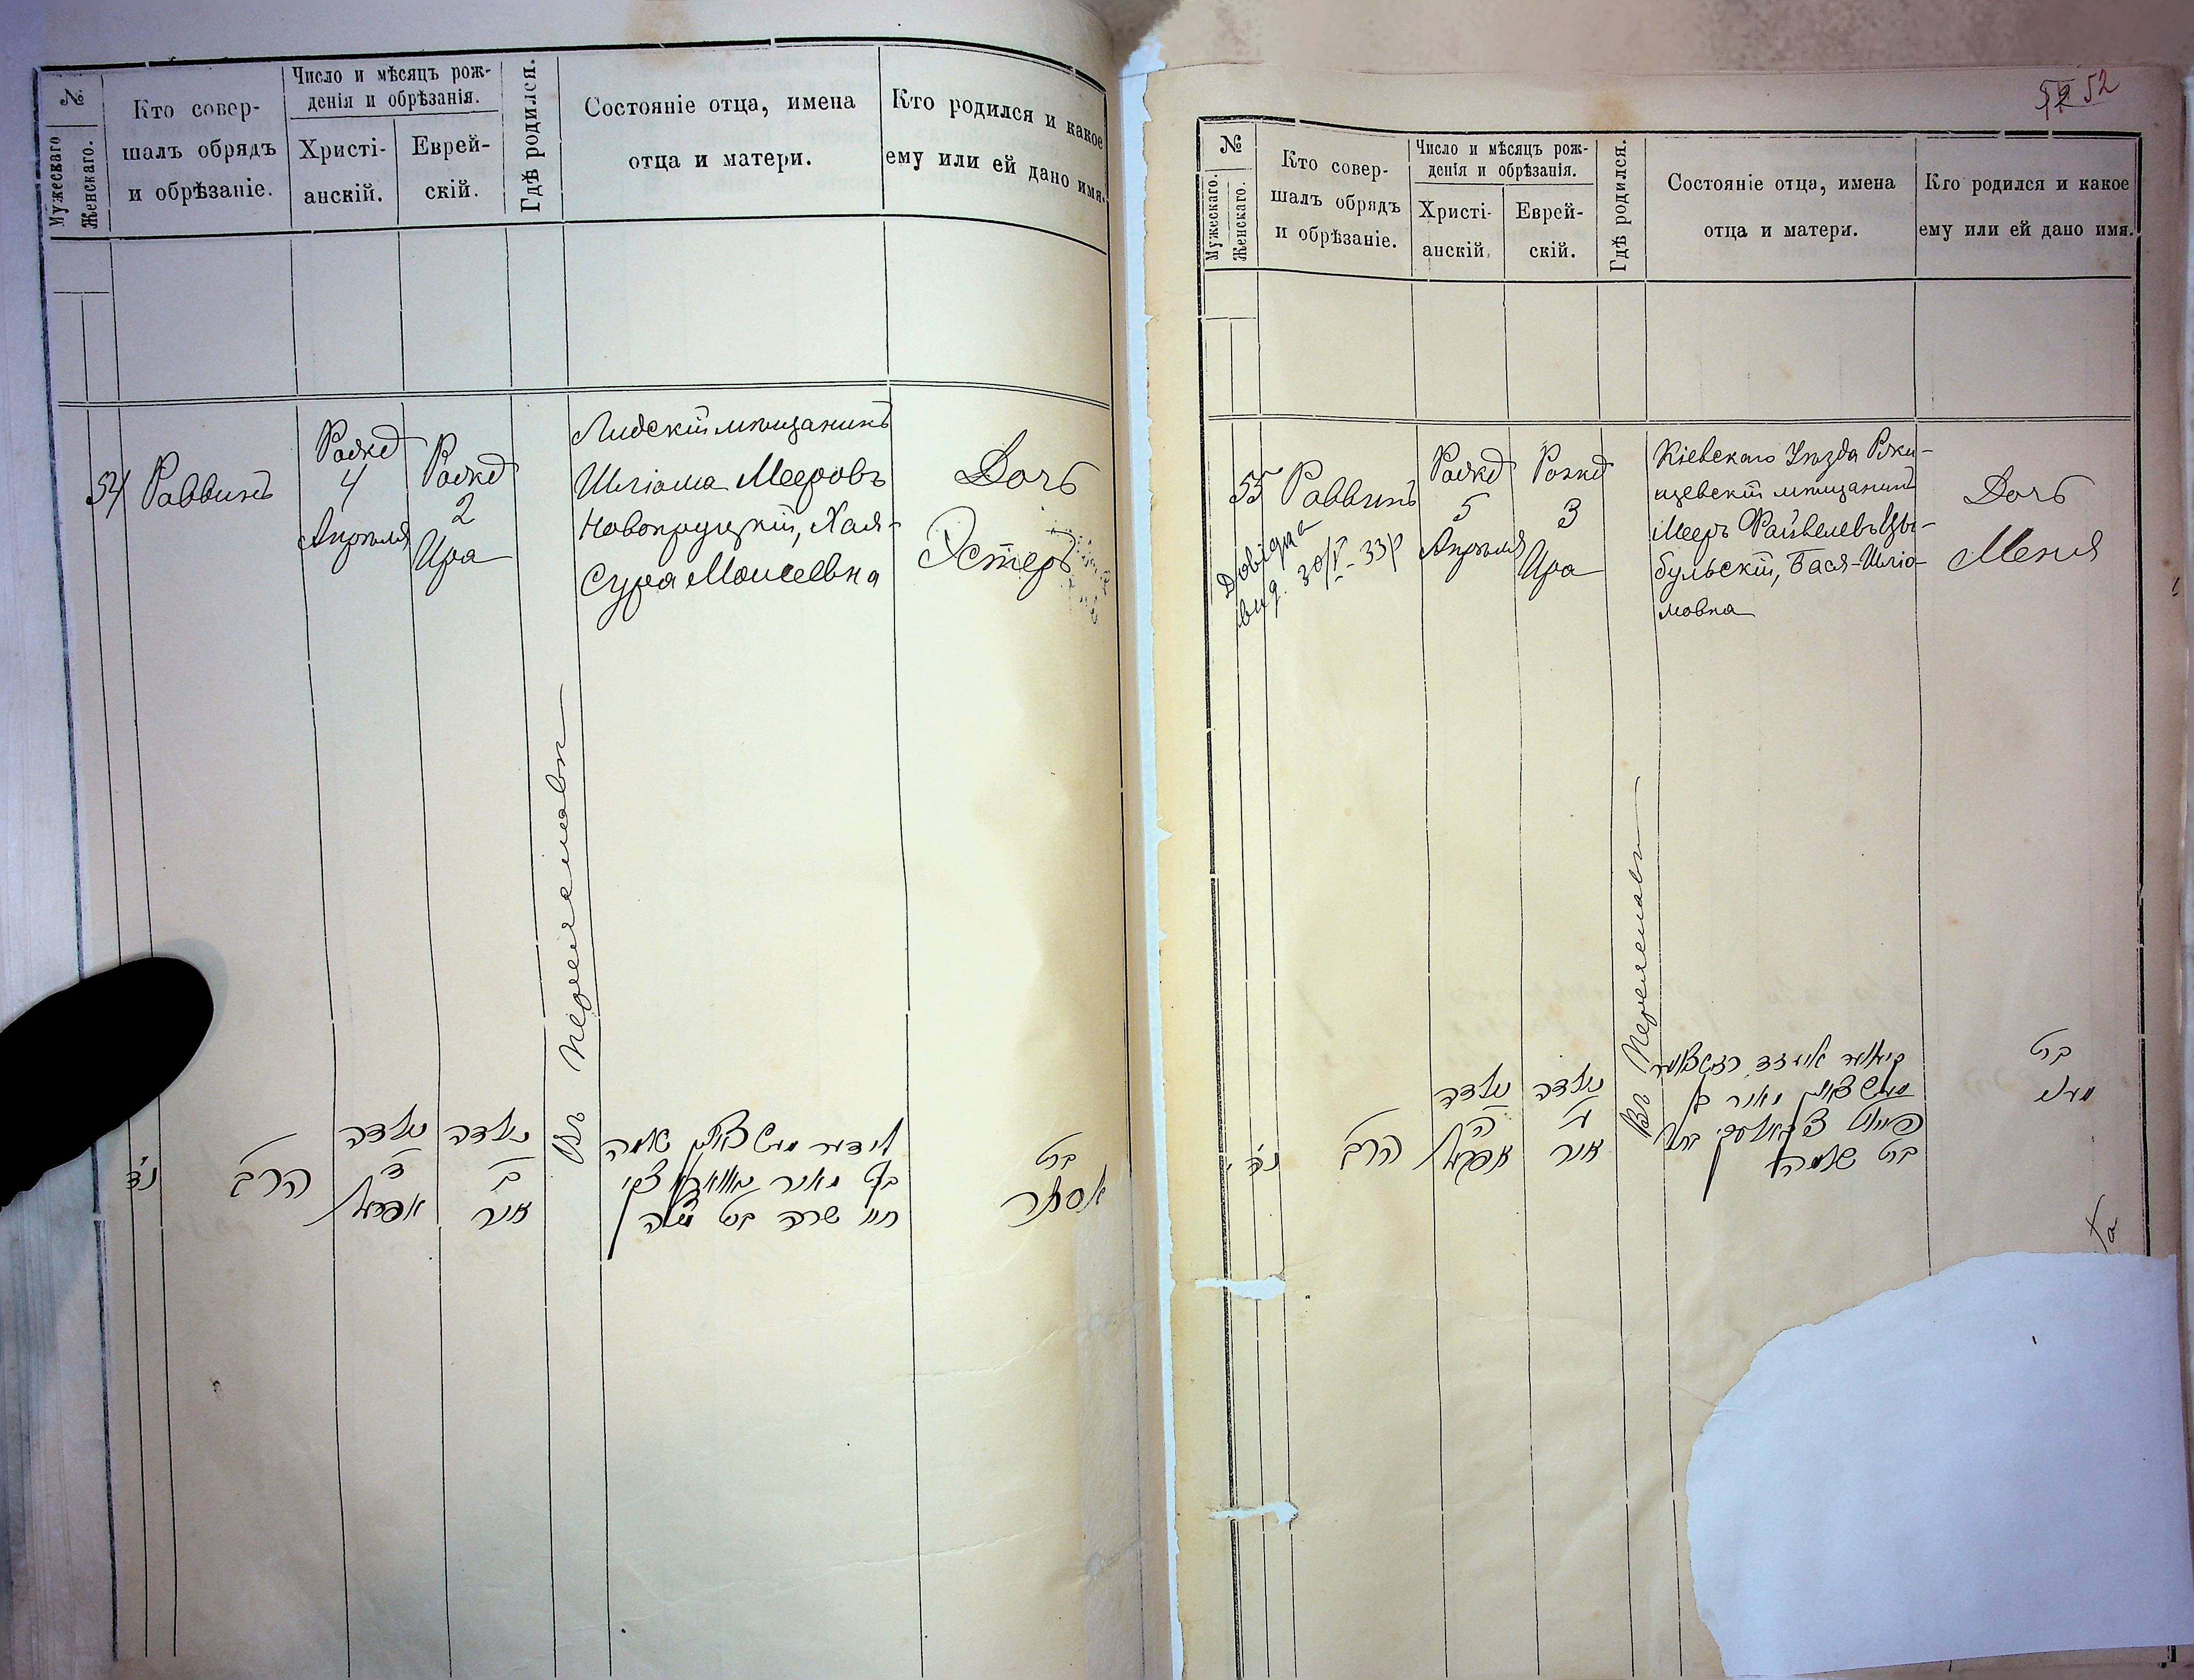 №
Мужескаго
Женскаго.
Кто совер-
шалъ обрядъ
и обрѣзаніе.
Число и мѣсяцъ рож-
денія и обрѣзанія.
Христі-
анскій.
Еврей-
скій.
Гдѣ родился.
Состояніе отца, имена
отца и матери.
Кто родился и какое
ему или ей дано имя.
54
Раввинъ
Рожд
4
Апрѣля
Рожд
2
Ира
Въ Переяславѣ
Лидскій мѣщанинъ
Шліома Мееровъ
Новопруцкій, Хая-
Сура Моисеевна
Дочь
Эстеръ
נ״ד
הרב
נולדה
ד׳
אפריל
נולדה
ב׳
אייר
לידער
שלמה
מאיר
חיי שרה בת משה
בת
אסתר
52 52
№
Мужескаго.
Женскаго.
Кто совер-
шалъ обрядъ
и обрѣзаніе.
Число и мѣсяцъ рож-
денія и обрѣзанія.
Христі-
анскій.
Еврей-
скій.
Гдѣ родился.
Состояніе отца, имена
отца и матери.
Кто родился и какое
ему или ей дано имя.
55
Раввинъ
Довідка
вид. 30/V-33р
Рожд
5
Апрѣля
Рожд
3
Ира
Въ Переяславѣ
Кіевскаго Уѣзда Ржи-
щевскій мѣщанинъ
Мееръ Файвелевъ Цы-
бульскій, Бася-Шліо-
мовна
Дочь
Меня
נ״ה
הרב
נולדה
ה׳
אפריל
נולדה
ג׳
אייר
מאיר בן
בת שלמה
בת
מניא